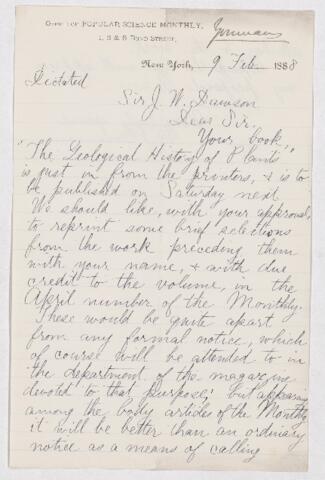 Office of POPULAR SCIENCE MONTHLY,
Youmans
1, 3 & 5 Bond Street,
New York, 9 Feb 1888
Dictated
Sir J. W. Dawson
Dear Sir,
Your book,
"The Geological History of Plants"
is just in from the printers, & is to
be published on Saturday next.
We should like, with your approval,
to reprint some brief selections
from the work preceding them
with your name, & with due
credit to the volume, in the
April number of the Monthly.
These would be quite apart
from any formal notice, which
of course will be attended to in
the department of the magazine
devoted to that purpose; but appearing
among the body articles of the Monthly
it will be better than an ordinary
notice as a means of calling